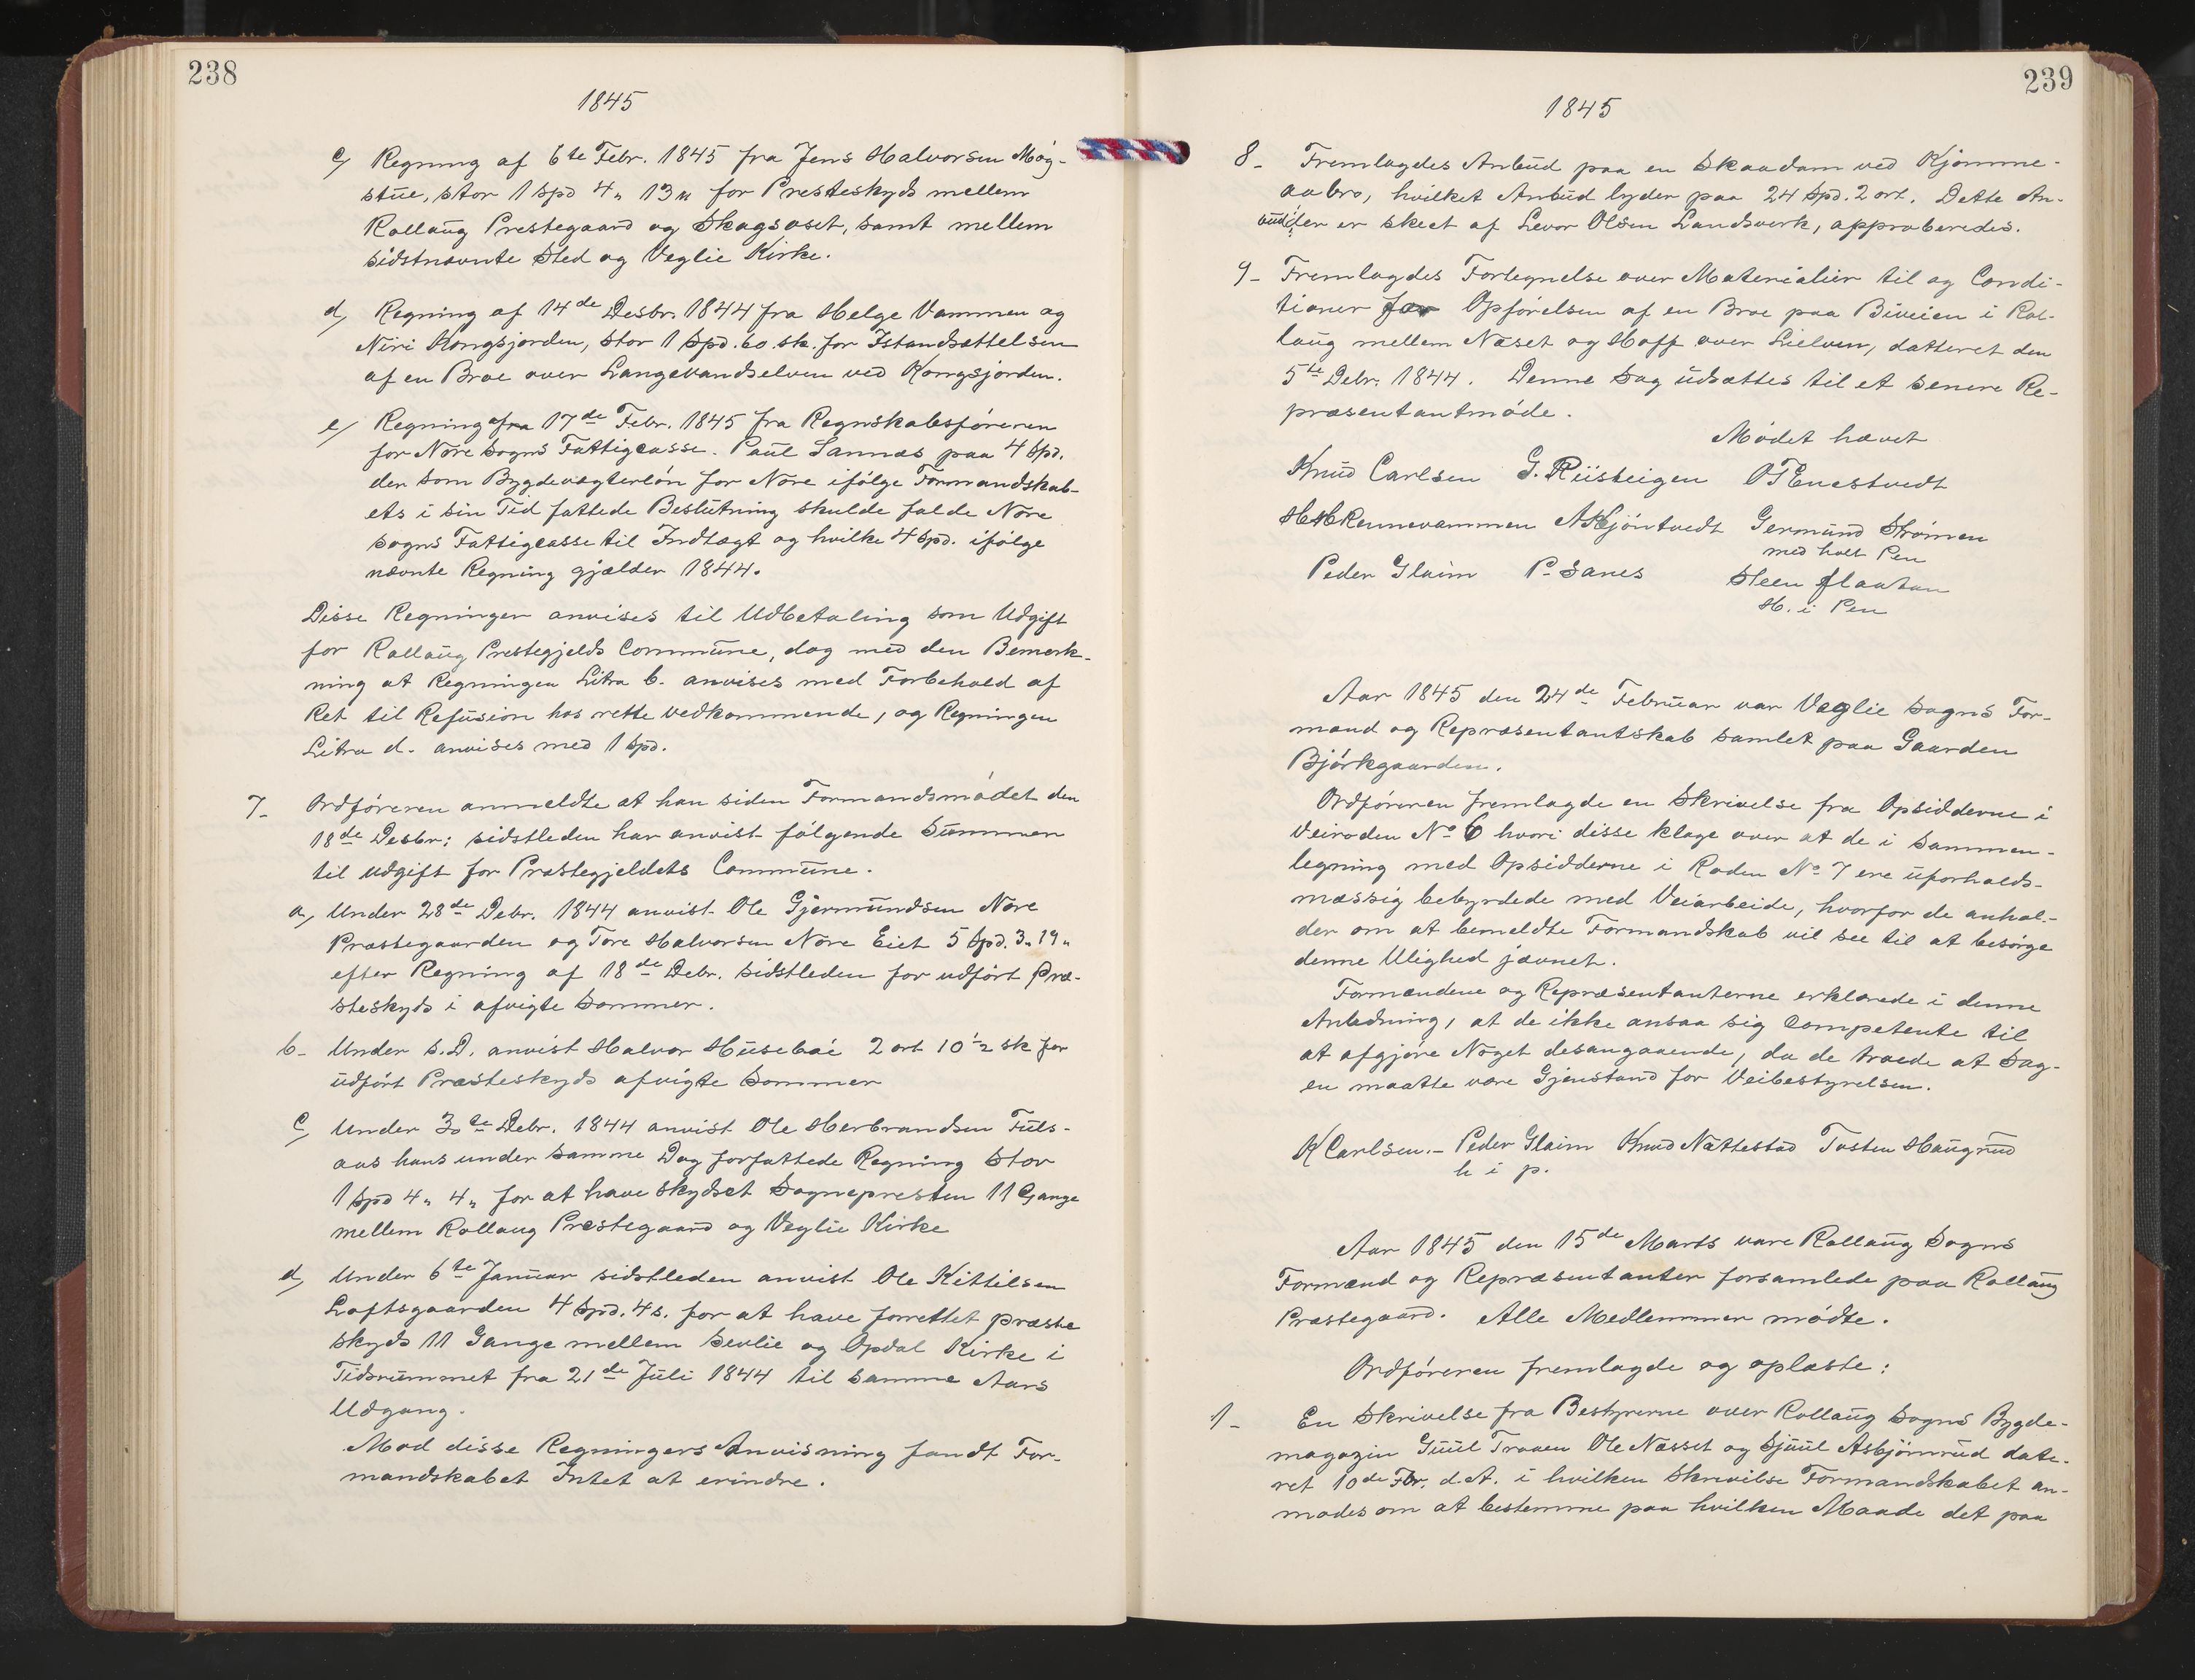 238
1845
c, Regning af 6te Febr. 1845 fra Jens Halvorsen Møg-
stue, stor 1 Spd 4 „ 13 „ for Presteskyds mellem
Rollaug Prestegaard og Skagsoset, samt mellem
sidstnævnte Sted og Veglie Kirke.
d, Regning af 14de Desbr. 1844 fra Helge Vammen og
Niri Kongsjorden, stor 1 Spd. 60 sk. for Istandsættelsen
af en Broe over Langevandselven ved Kongsjorden.
e, Regning af 17de Febr. 1845 fra Regnskabsføreren
for Nore Sogns Fattigcasse. Paul Sannæs paa 4 Spd.
der som Bygdevægterløn for Nore ifølge Formandskab-
ets i sin Tid fattede Beslutning skulde falde Nore
Sogns Fattigcasse til Indtægt og hvilke 4 Spd. ifølge
nævnte Regning gjælder 1844.
Disse Regninger anvises til Udbetaling som Udgift
for Rollaug Prestegjelds Commune, dog med den Bemærk-
ning at Regningen Litra b. anvises med Forbehold af
Ret til Refusion hos rette vedkommende, og Regningen
Litra d. anvises med 1 Spd.
7- Ordføreren anmeldte at han siden Formandsmødet den
18de Desbr: sidstleden har anvist følgende Summer
til udgift for Præstegjeldets Commune.
a, Under 28de Debr. 1844 anvist Ole Gjermundsen Nore
Præstegaarden og Tore Halvorsen Nore Eiet 5 Spd. 3 „ 19 „
efter Regning af 18de Debr. sidstleden for udført Præ-
steskyds i afvigte Sommer.
b- Under S.D. anvist Halvor Husebøe 2 ort 10 ½ sk for
udført Præsteskyds afvigte Sommer
c, Under 30te Debr. 1844 anvist Ole Herbrandsen Fuls-
aas hans under samme Dag forfattede Regning Stor
1 Spd 4 „ 4 „ for at have skydset Sognepresten 11 Gange
mellem Rollaug Prestegaard og Veglie Kirke
d, Under 6te Januar sidstleden anvist Ole Kittilsen
Loftsgaarden 4 Spd. 4 s. for at have forrettet præste
skyds 11 Gange mellem Sevlie og Opdal Kirke i
Tidsrummet fra 21de Juli 1844 til samme Aars
Udgang.
Mod disse Regningers Anvisning fandt For-
mandskabet Intet at erindre.
239
1845
8- Fremlagdes Anbud paa en Skaadam ved Kjømme-
aabro, hvilket Anbud lyder paa 24 Spd. 2 ort. Dette An-
bud der er skeet af Levor Olsen Landsverk, approberedes.
9- Fremlagdes Fortegnelse over Materialier til og Condi-
tioner for Opførelsen af en Broe paa Biveien i Rol-
laug mellem Næset og Hoff over Lielven, datteret den
5te Debr. 1844. Denne Sag udsættes til et senere Re-
præsentantmøde.
Mødet hævet
Knud Carlsen G. Riisteigen OT Enestvedt
HH Kennevammen A Kjøntvedt Germund Strømen
med holt Pen
Peder Glaim P. Sanes Steen Flaatan
H. i Pen
Aar 1845 den 24de Februar var Veglie Sogns For-
mand og Repræsentantskab samlet paa Gaarden
Bjørkgaarden.
Ordføreren fremlagde en Skrivelse fra Opsidderne i
Veiroden No 6 hvori disse klage over at de i Sammen-
legning med Opsidderne i Roden No 7 ere uforholds-
mæssig bebyrdede med Veiarbeide, hvorfor de anhol-
der om at bemeldte Formandskab vil see til at besørge
denne Ulighed jævnet.
Formændene og Repræsentanterne erklærede i denne
Anledning, at de ikke ansaa sig Competente til
at afgjøre Noget desangaaende, da de troede at Sag-
en maatte være Gjenstand for Veibestyrelsen.
K Carlsen.- Peder Glaim Knud Nættestad Tosten Haugrud
h i p.
Aar 1845 den 15de Marts vare Rollaug Sogns
Formænd og Repræsentanter forsamlede paa Rollaug
Præstegaard. Alle Medlemmer mødte.
Ordføreren fremlagde og oplæste:
1- En Skrivelse fra Bestyrerne over Rollaug Sogns Bygde-
magazin Guul Traaen Ole Næsset og Sjuul Asbjørnrud date-
ret 10de Fbr. d.A. i hvilken Skrivelse Formandskabet an-
modes om at bestemme paa hvilken Maade det paa